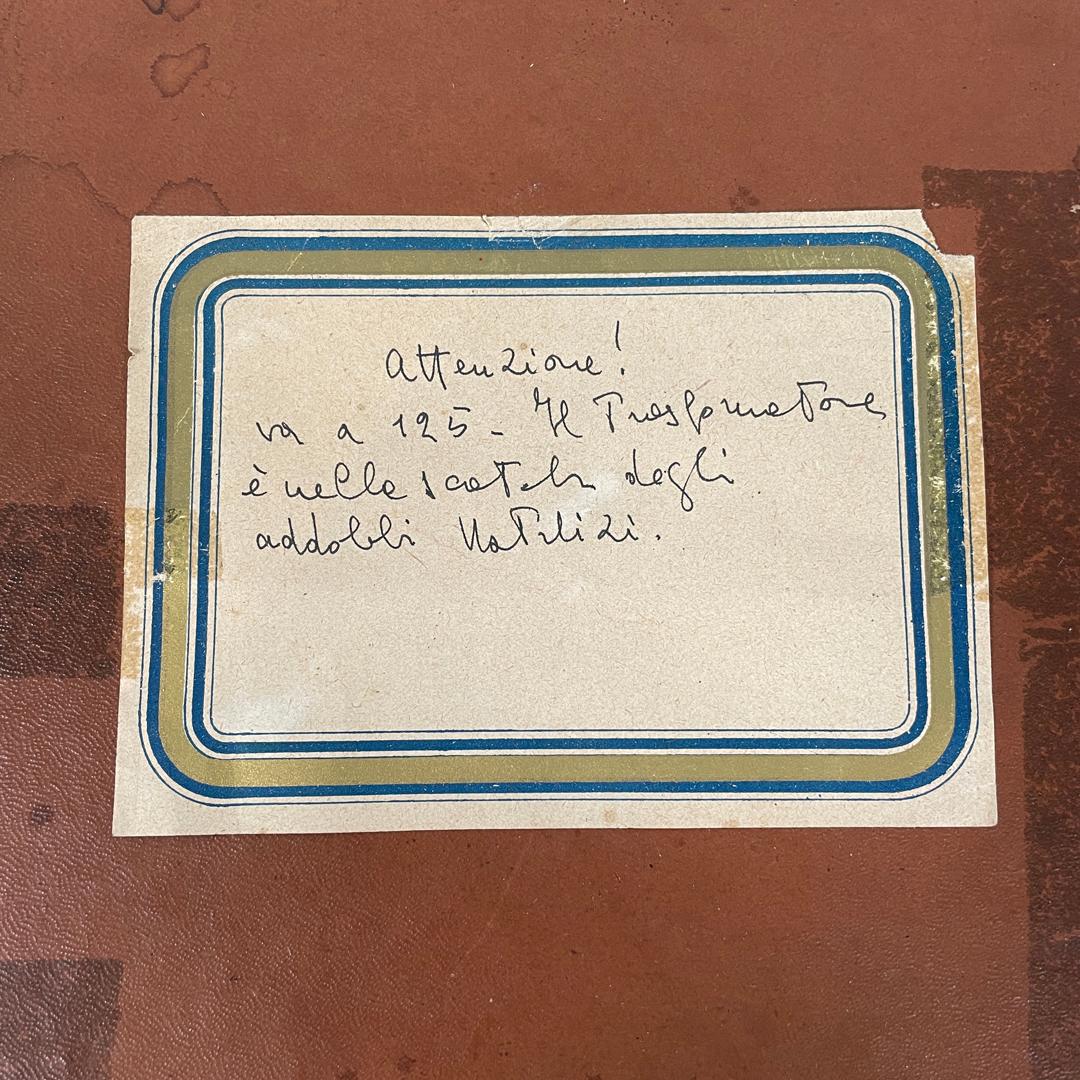 Attenzione!
va a 125 - Il Trasformatore
è nella scatola degli
addobbi Natalizi.